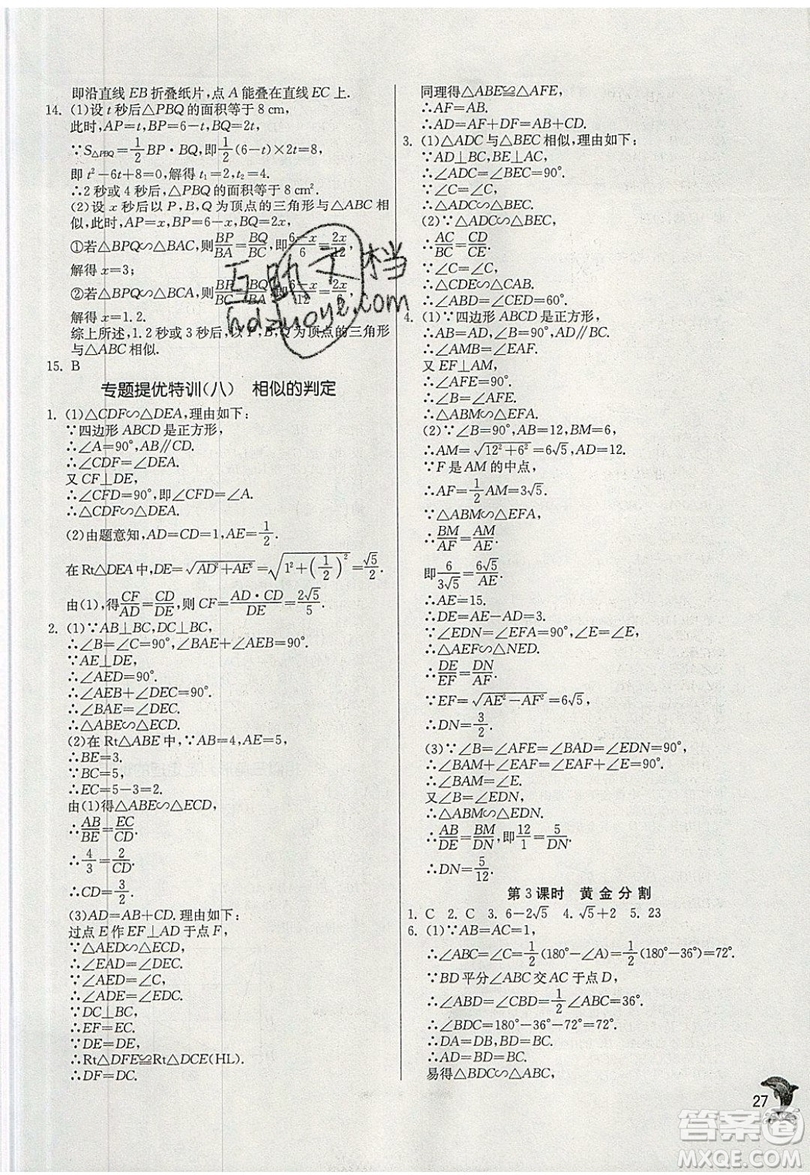 即沿直线 EB 折叠纸片,点 A 能叠在直线 EC 上.
14. (1)设 t 秒后△PBQ 的面积等于 8 cm,
此时,AP=t,BP=6-t,BQ=2t,
∵S△PBQ=1/2BP·BQ,即1/2(6-t)×2t=8,
即 t²-6t+8=0,解得 t₁=2,t₂=4.
∴2秒或 4秒后,△PBQ 的面积等于 8 cm².
(2)设 x 秒后以 P,B,Q 为顶点的三角形与△ABC 相
似,此时,AP=x,BP=6-x,BQ=2x,
①若△BPQ∽△BAC,则BP/BA=BQ/BC,即(6-x)/6=2x/12,
解得 x=3;
②若△BPQ∽△BCA,则BP/BC=BQ/BA,即(6-x)/12=2x/6,
解得 x=1.2.
综上所述,1.2秒或3秒后,以P,B,Q为顶点的三角形
与△ABC 相似.
15. B
专题提优特训(八) 相似的判定
1. (1)△CDF∽△DEA,理由如下:
∵四边形 ABCD 是正方形,
∴∠A=90°,AB∥CD.
∴∠CDF=∠DEA.
又 CF⊥DE,
∴∠CFD=90°,即∠CFD=∠A.
∴△CDF∽△DEA.
(2)由题意知,AD=CD=1,AE=1/2.
在 Rt△DEA 中,DE=√(AD²+AE²)=√(1²+(1/2)²)=√5/2.
由(1),得CF/AD=CD/DE,则 CF=AD·CD/DE=2√5/5.
2. (1)∵AB⊥BC,DC⊥BC,
∴∠B=∠C=90°,∠BAE+∠AEB=90°.
∵AE⊥DE,
∴∠AED=90°.
∴∠AEB+∠DEC=90°.
∴∠DEC=∠BAE.
∴△ABE∽△ECD.
(2)在 Rt△ABE 中,∵AB=4,AE=5,
∴BE=3.
∵BC=5,
∴EC=5-3=2.
由(1)得△ABE∽△ECD,
∴AB/BE=EC/CD.
∴4/3=2/CD.
∴CD=3/2.
(3)AD=AB+CD. 理由如下:
过点 E 作 EF⊥AD 于点 F,
∵△AED∽△ECD,
∴∠EAD=∠DEC.
∵∠AED=∠C,
∴∠ADE=∠EDC.
∵DC⊥BC,
∴EF=EC.
∵DE=DE,
∴Rt△DFE≌Rt△DCE(HL).
∴DF=DC.
同理得△ABE≌△AFE,
∴AF=AB.
∴AD=AF+DF=AB+CD.
3. (1)△ADC 与△BEC 相似,理由如下:
∵AD⊥BC,BE⊥AC,
∴∠ADC=∠BEC=90°.
∵∠C=∠C,
∴△ADC∽△BEC.
(2)∵△ADC∽△BEC,
∴AC/BC=CD/CE.
∵∠C=∠C,
∴△CDE∽△CAB.
∴∠CDE=∠CAB.
4. (1)∵四边形 ABCD 是正方形,
∴AB=AD,∠B=90°,AD∥BC.
∴∠AMB=∠EAF.
又 EF⊥AM,
∴∠AFE=90°.
∴∠B=∠AFE.
∴△ABM∽△EFA.
(2)∵∠B=90°,AB=12,BM=6,
∴AM=√(12²+6²)=6√5,
∵F 是 AM 的中点,
∴AF=1/2AM=3√5.
∵△ABM∽△EFA,
∴BM/AF=AM/AE.
即6/3√5=6√5/AE.
∴AE=15.
∴DE=AE-AD=3.
∵∠EDN=∠EFA=90°,∠E=∠E,
∴△AEF∽△NED.
∴DE/EF=DN/AF.
∵EF=√(AE²-AF²)=6√5,
∴DN=3/2.
(3)∵∠B=∠AFE=∠BAD=∠EDN=90°,
∴∠BAM=∠AEF.
又∠B=∠EDN,
∴△ABM∽△EDN.
∴AB/DE=BM/DN,即12/1=5/DN.
∴DN=5/12.
第 3 课时 黄 金 分 割
1. C 2. C 3. 6-2√5 4. √5+2 5. 23
6. (1)∵AB=AC=1,
∴∠ABC=∠C=1/2(180°-∠A)=1/2(180°-36°)=72°.
∵BD 平分∠ABC 交 AC 于点 D,
∴∠ABD=∠CBD=1/2∠ABC=36°.
∴∠BDC=180°-36°-72°=72°.
∴DA=DB,BD=BC.
∴AD=BD=BC.
易得△BDC∽△ABC,
27
互助文档
hdzuoye.com
答案圈
MXQE.COM